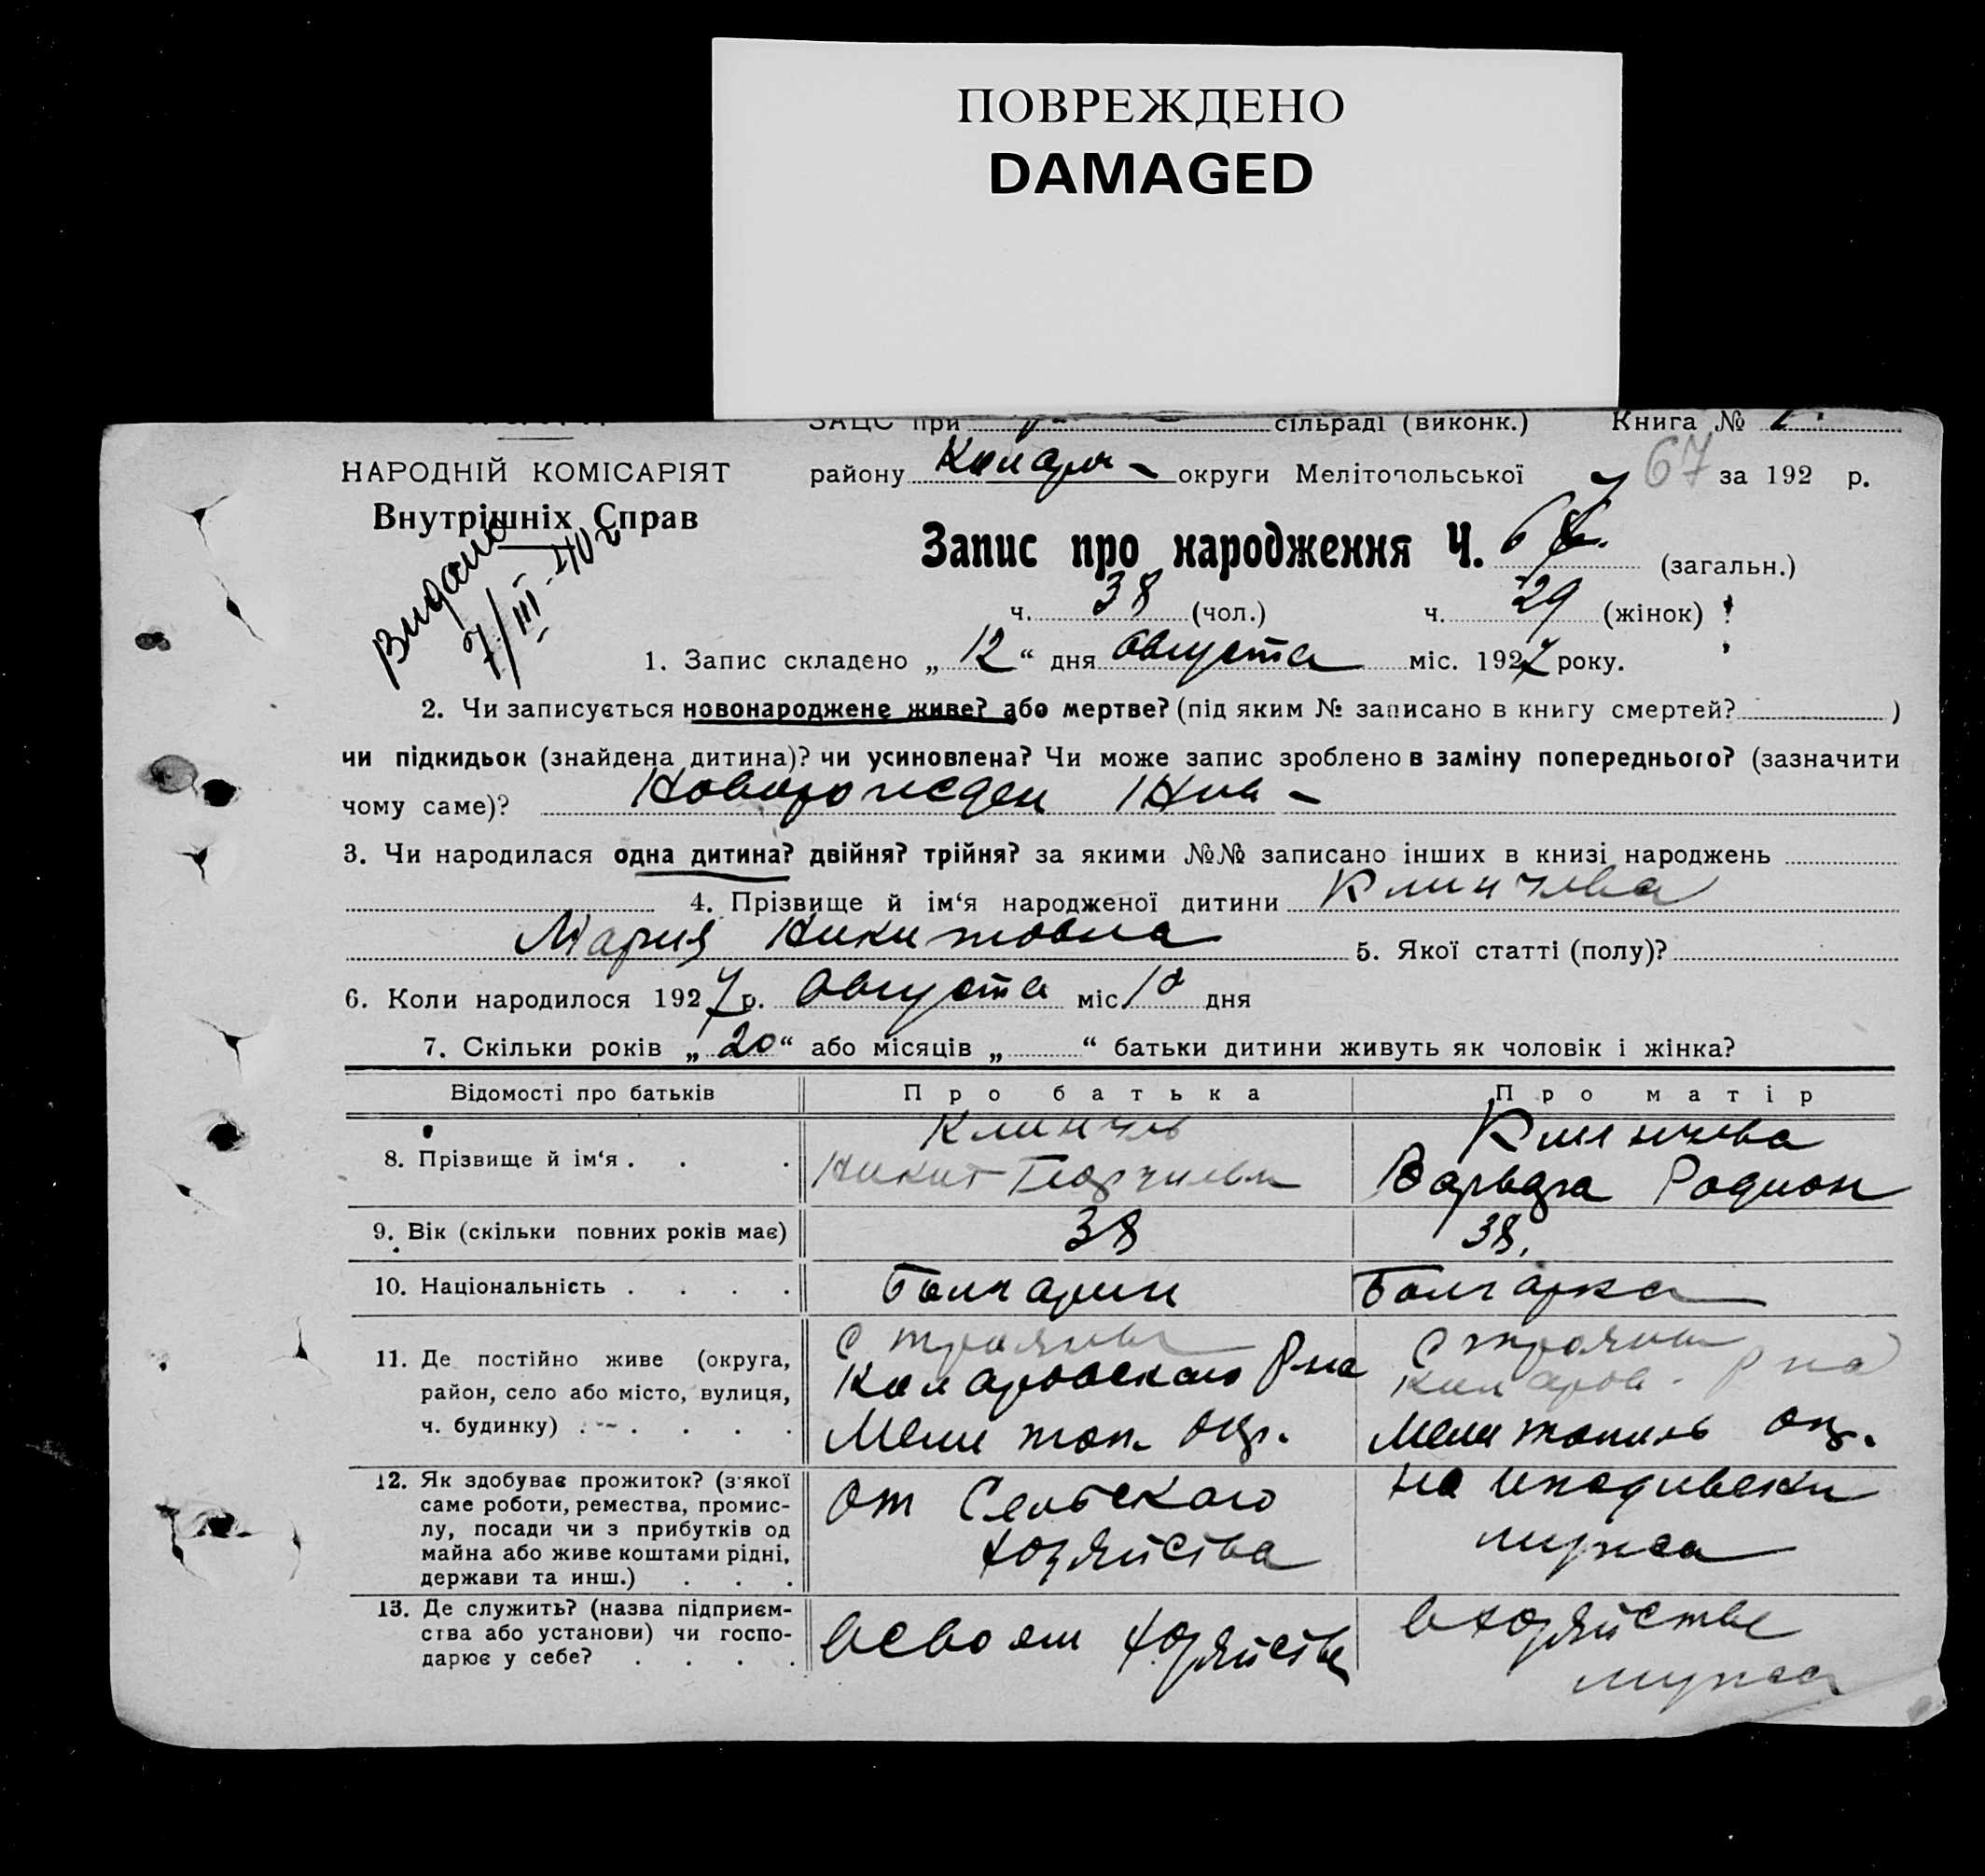 ПОВРЕЖДЕНО
DAMAGED
ЗАЦС при сільраді (виконк.) Книга №
НАРОДНІЙ КОМІСАРІЯТ
району Коларо округи Мелітопольської 7 67 за 192 р.
Внутрішніх Справ
Видано 7/III-40 г
Запис про народження Ч. 67. (загальн.)
ч. 38 (чол.) ч. 29 (жінок)
1. Запис складено „ 12 “ дня августа міс. 1927 року.
2. Чи записується новонароджене живе? або мертве? (під яким № записано в книгу смертей? )
чи підкидьок (знайдена дитина)? чи усиновлена? Чи може запис зроблено в заміну попереднього? (зазначити
чому саме)? Новорожден
3. Чи народилася одна дитина? двійня? трійня? за якими №№ записано інших в книзі народжень
4. Прізвище й ім‘я народженої дитини Клинчева
Мария Никитовна 5. Якої статті (полу)?
6. Коли народилося 1927 р. Августа міс 10 дня
7. Скільки років „ 20 “ або місяців „ “ батьки дитини живуть як чоловік і жінка?
Відомості про батьків Про батька Про матір
8. Прізвище й ім‘я . . . Клинчев Клинчева
Никит Георгиевич Варвара Родион
9. Вік (скільки повних років має) 38 38.
10. Національність . . . . Болгарин Болгарка
11. Де постійно живе (округа, С Трояны С Трояны
район, село або місто, вулиця, Коларовского Р на Колaров. Р на
ч. будинку) . . . . Мелитоп. окр. Мелитополь ок.
12. Як здобуває прожиток? (з якої От Сельского На иждивении
саме роботи, ремества, промис- хозяйства мужа
лу, посади чи з прибутків од
майна або живе коштами рідні,
держави та инш.) . . .
13. Де служить? (назва підприєм- в своем хозяйстве в хозяйстве
ства або установи) чи госпо- мужа
дарює у себе? . . . .